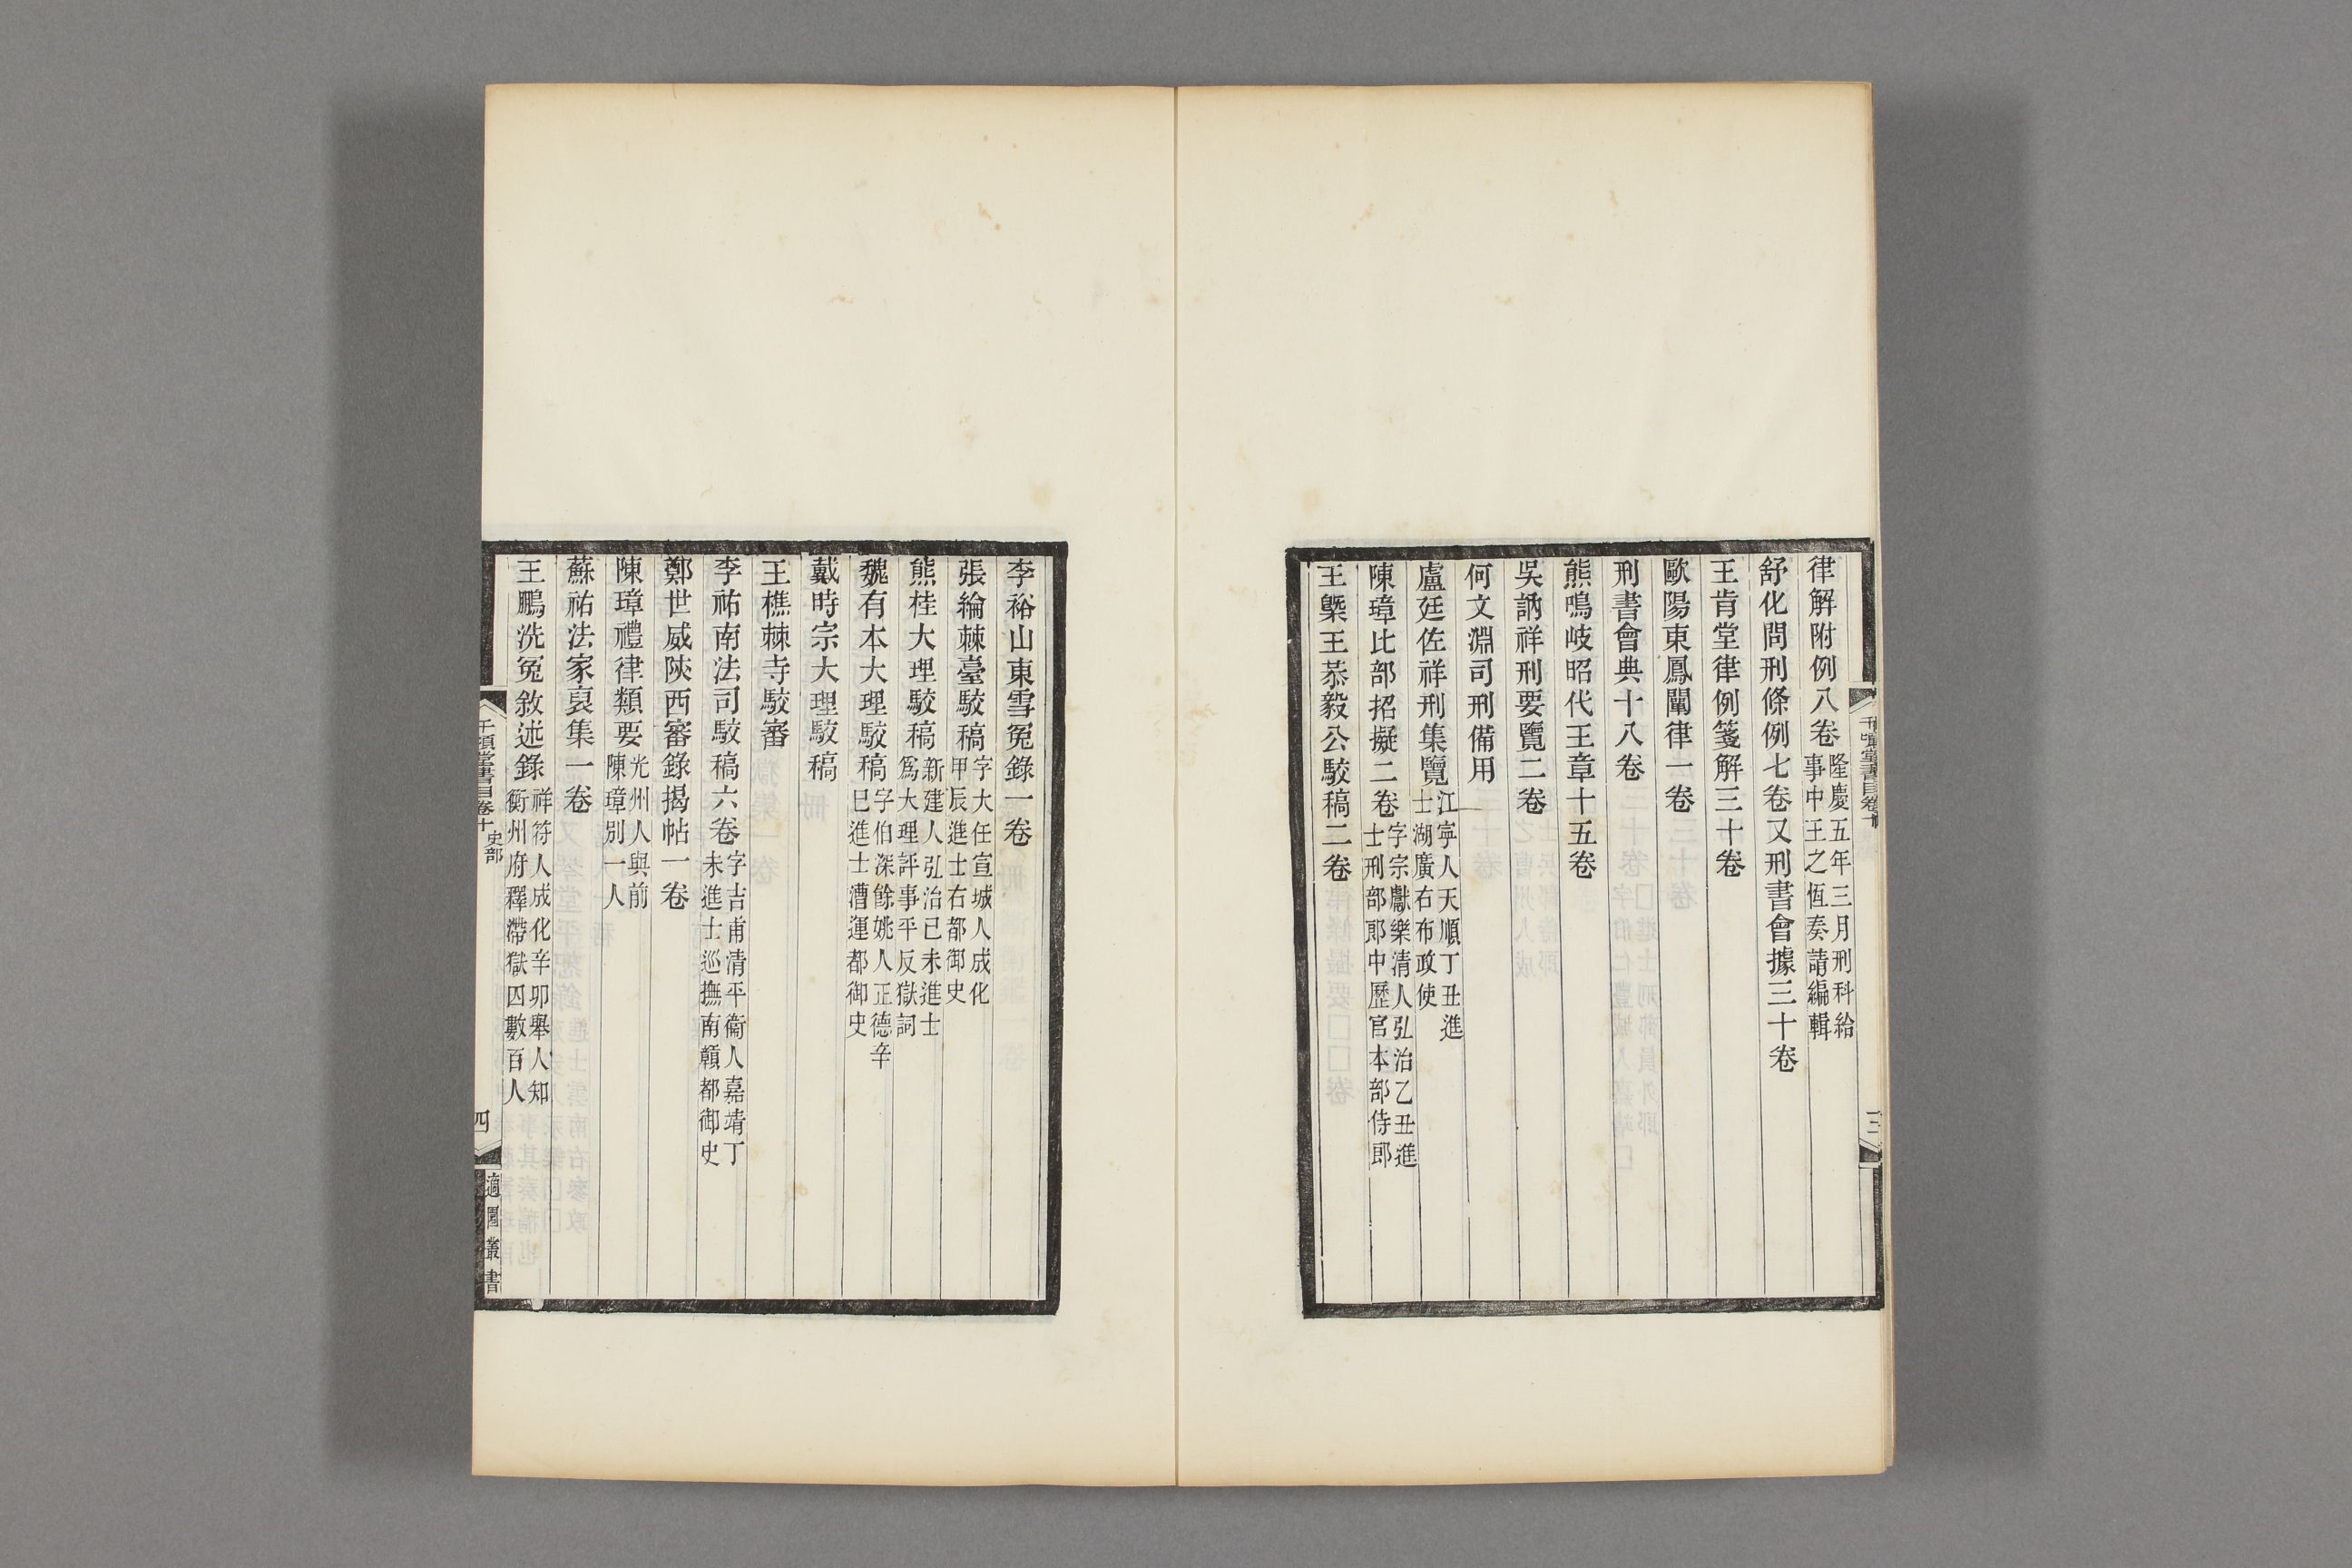 千頃堂書目卷十
三
律解附例八卷隆慶五年三月刑科給事中王之恆奏請編輯
舒化問刑條例七卷又刑書會據三十卷
王肯堂律例箋解三十卷
歐陽東鳳闡律一卷
刑書會典十八卷
熊鳴岐昭代王章十五卷
吳訥祥刑要覽二卷
何文淵司刑備用
盧廷佐祥刑集覽江寧人天順丁丑進士湖廣右布政使
陳璋比部招擬二卷字宗獻樂清人弘治乙丑進士刑部郎中歷官本部侍郎
王槩王恭毅公駮稿二卷
李裕山東雪冤錄一卷
張綸棘臺駮稿字大任宣城人成化甲辰進士右都御史
熊桂大理駮稿新建人弘治己未進士爲大理評事平反獄詞
魏有本大理駮稿字伯深餘姚人正德辛巳進士漕運都御史
戴時宗大理駮稿
王樵棘寺駮審
李祐南法司駮稿六卷字吉甫清平衞人嘉靖丁未進士巡撫南贛都御史
鄭世威陝西審錄揭帖一卷
陳璋禮律類要光州人與前陳璋別一人
蘇祐法家裒集一卷
王鵬洗冤敘述錄祥符人成化辛卯舉人知衞州府釋滯獄囚數百人
千頃堂書目卷十 史部
四
適園叢書